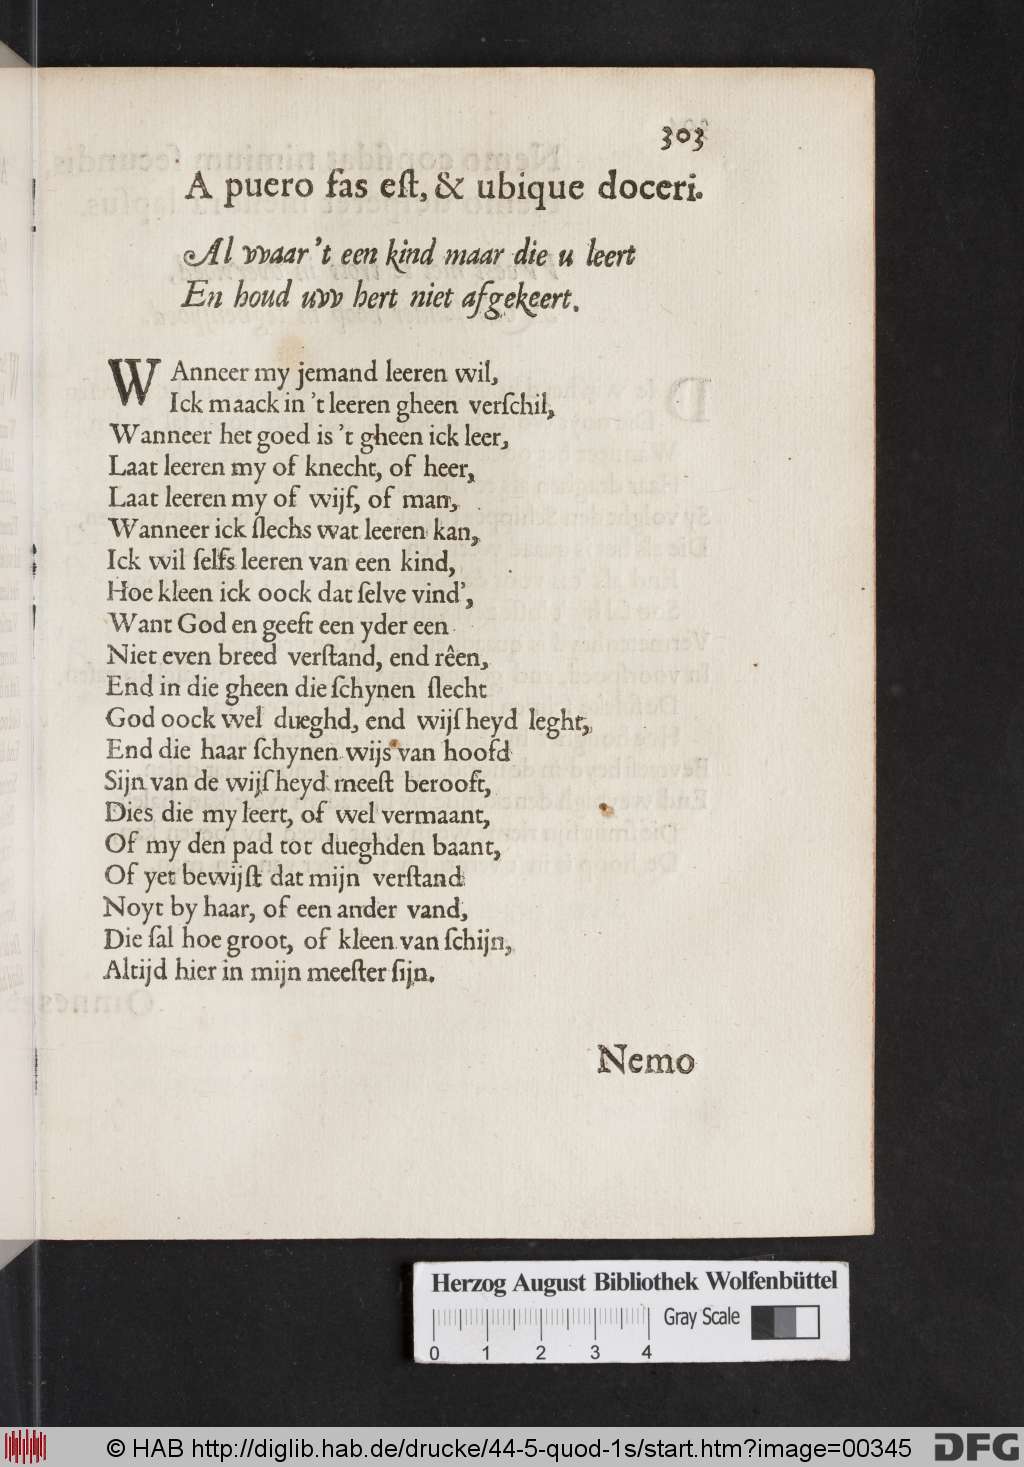 303
A puero fas eſt, & ubique doceri.
Al vvaar 't een kind maar die u leert
En houd uvv hert niet afgekeert.
WAnneer my jemand leeren wil,
Ick maack in 't leeren gheen verſchil,
Wanneer het goed is 't gheen ick leer,
Laat leeren my of knecht, of heer,
Laat leeren my of wijf, of man,
Wanneer ick ſlechs wat leeren kan,
Ick wil ſelfs leeren van een kind,
Hoe kleen ick oock dat ſelve vind',
Want God en geeft een yder een
Niet even breed verſtand, end rêen,
End in die gheen die ſchynen ſlecht
God oock wel dueghd, end wijſheyd leght,
End die haar ſchynen wijs van hoofd
Sijn van de wijſheyd meeſt berooft,
Dies die my leert, of wel vermaant,
Of my den pad tot dueghden baant,
Of yet bewijſt dat mijn verſtand
Noyt by haar, of een ander vand,
Die ſal hoe groot, of kleen van ſchijn,
Altijd hier in mijn meeſter ſijn.
Nemo
Herzog August Bibliothek Wolfenbüttel
Gray Scale
0 1 2 3 4
© HAB http://diglib.hab.de/drucke/44-5-quod-1s/start.htm?image=00345
DFG